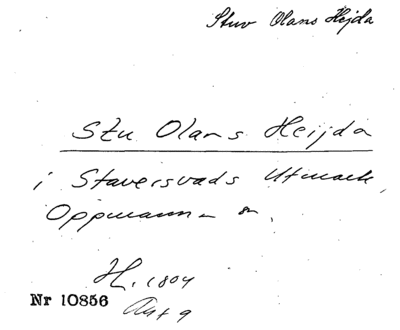 Stuv Olans Hejda
Stu Olans Heijda
i Staversvads Utmark,
Oppmanna sn.
H. 1804
Nr 10856